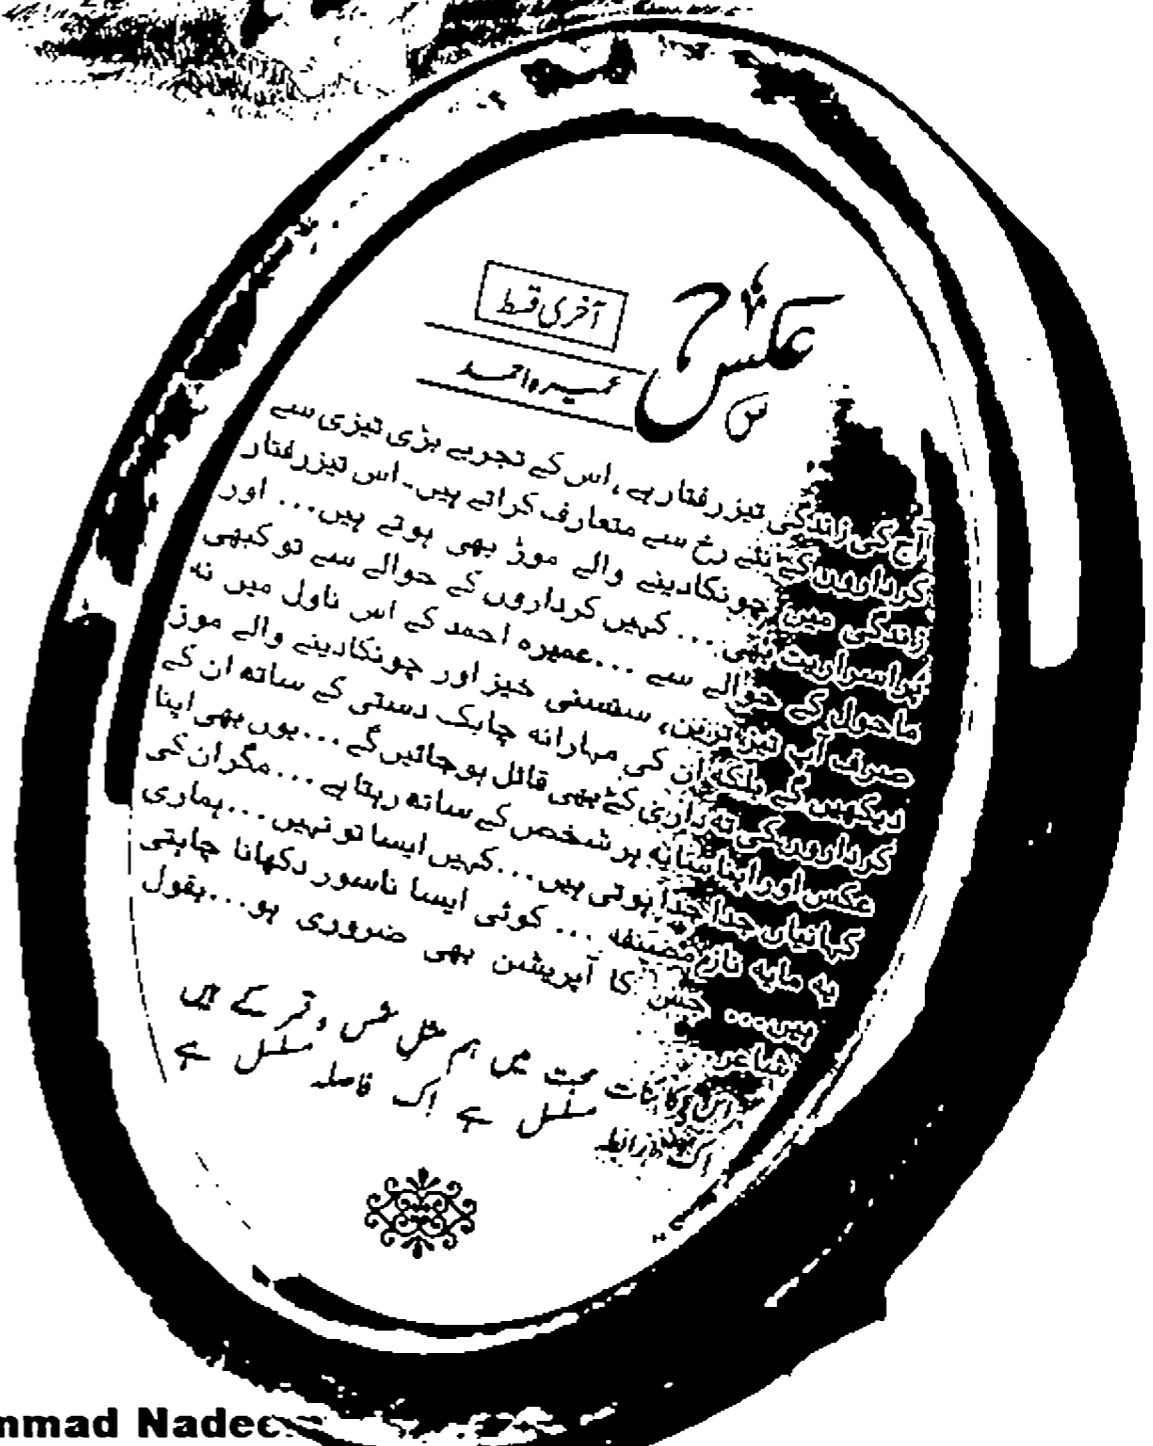 عکس
آخری قسط
عمیرہ احمد
آج کی زندگی تیز رفتار ہے، اس کے تجربے بڑی تیزی سے
کرداروں کے نئے رخ سے متعارف کراتے ہیں۔ اس تیز رفتار
زندگی میں چونکا دینے والے موڑ بھی ہوتے ہیں... اور
پراسراریت بھی... کہیں کرداروں کے حوالے سے تو کبھی
ماحول کے حوالے سے... عمیرہ احمد کے اس ناول میں نہ
صرف آپ تیز ترین، سنسنی خیز اور چونکا دینے والے موڑ
دیکھیں گے بلکہ ان کی مہارانہ چابک دستی کے ساتھ ان کے
کرداروں کی تہ داری کے بھی قائل ہو جائیں گے... یوں بھی اپنا
عکس اور اپنا سایہ ہر شخص کے ساتھ رہتا ہے... مگر ان کی
کہانیاں جدا جدا ہوتی ہیں... کہیں ایسا تو نہیں... ہماری
یہ مایہ ناز مصنفہ... کوئی ایسا ناسور دکھانا چاہتی
ہیں... جس کا آپریشن بھی ضروری ہو... بقول
شاعر...
اس کائنات محبت میں ہم مثل شمس و قمر کے ہیں
اک رابطہ مسلسل ہے اک فاصلہ مسلسل ہے